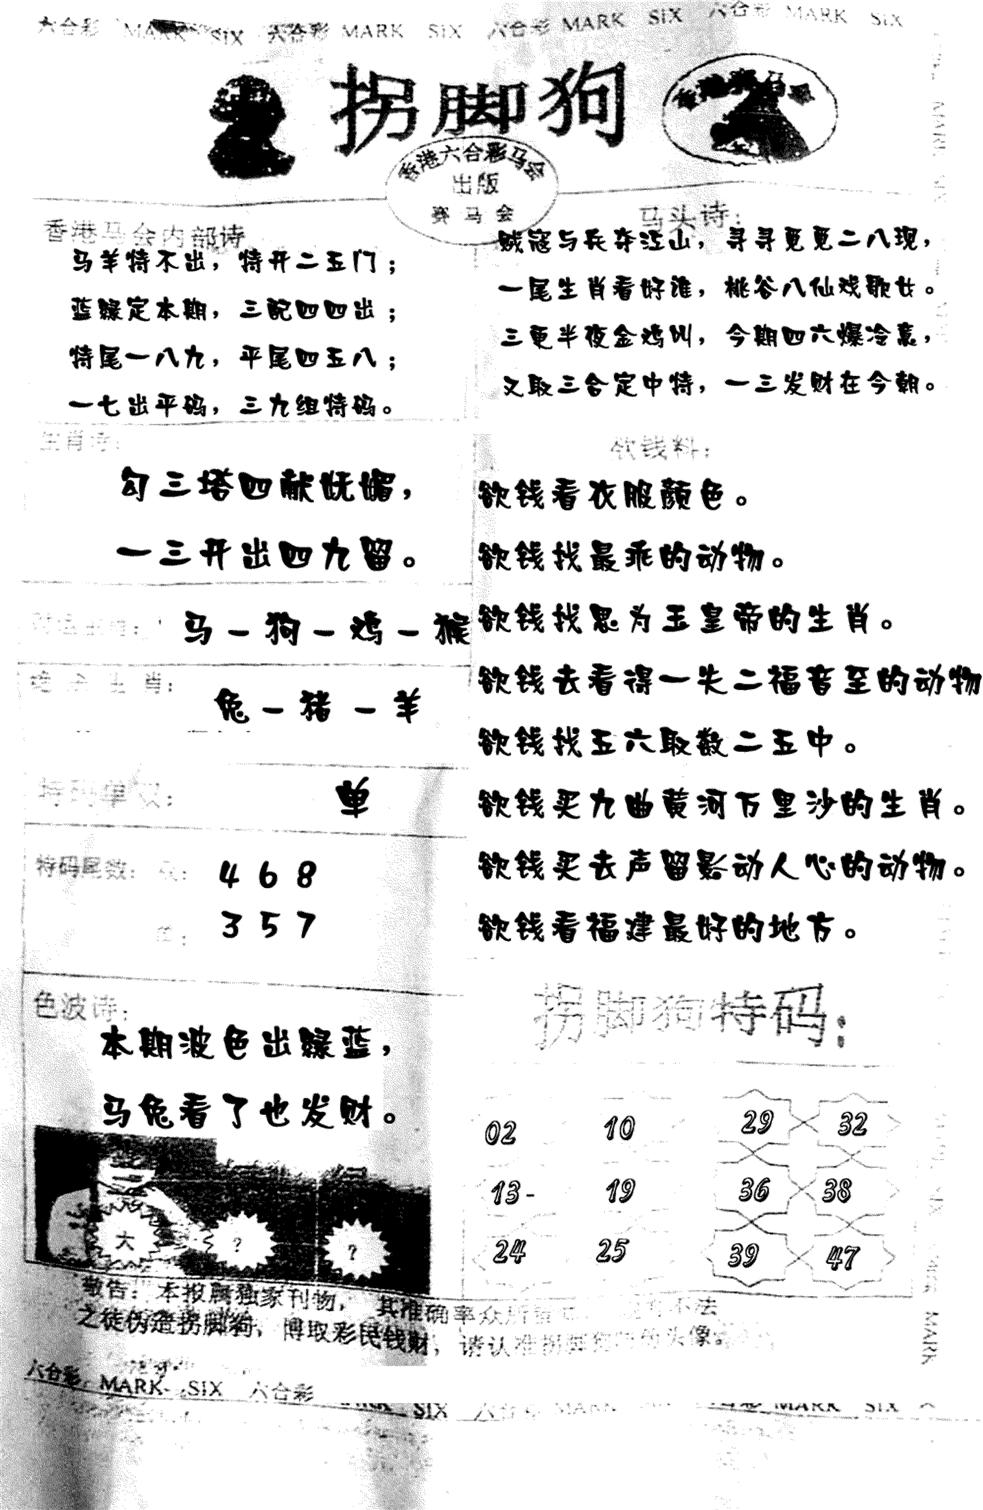 六合彩 MARK SIX 六合彩 MARK SIX 六合彩 MARK SIX 六合彩 MARK SIX
拐脚狗
香港赛马会
香港六合彩马会
出版
赛马会
香港马会内部诗
马羊特不出，特开二五门；
蓝绿定本期，三配四四出；
特尾一八九，平尾四五八；
一七出平码，三九组特码。
马头诗：
贼寇与兵夺江山，寻寻觅觅二八现，
一尾生肖看好谁，桃谷八仙戏歌女。
三更半夜金鸡叫，今期四六爆冷裹，
又取三合定中特，一三发财在今朝。
生肖诗：
勾三塔四献妩媚，
一三开出四九留。
马－狗－鸡－猴
绝杀生肖：
兔－猪－羊
特码单双：
单
特码尾数：双：
4 6 8
单：
3 5 7
色波诗：
本期波色出绿蓝，
马兔看了也发财。
大 ? ?
欲钱料：
欲钱看衣服颜色。
欲钱找最乖的动物。
欲钱找思为玉皇帝的生肖。
欲钱去看得一失二福音至的动物
欲钱找五六取数二五中。
欲钱买九曲黄河万里沙的生肖。
欲钱买去声留影动人心的动物。
欲钱看福建最好的地方。
拐脚狗特码：
02 10 29 32
13- 19 36 38
24 25 39 47
敬告：本报属独家刊物，其准确率众所
不法
之徒伪造拐脚狗，博取彩民钱财，请认准拐脚狗
头像
六合彩 MARK SIX 六合彩
MARK SIX 六合彩 MARK
MARK SIX